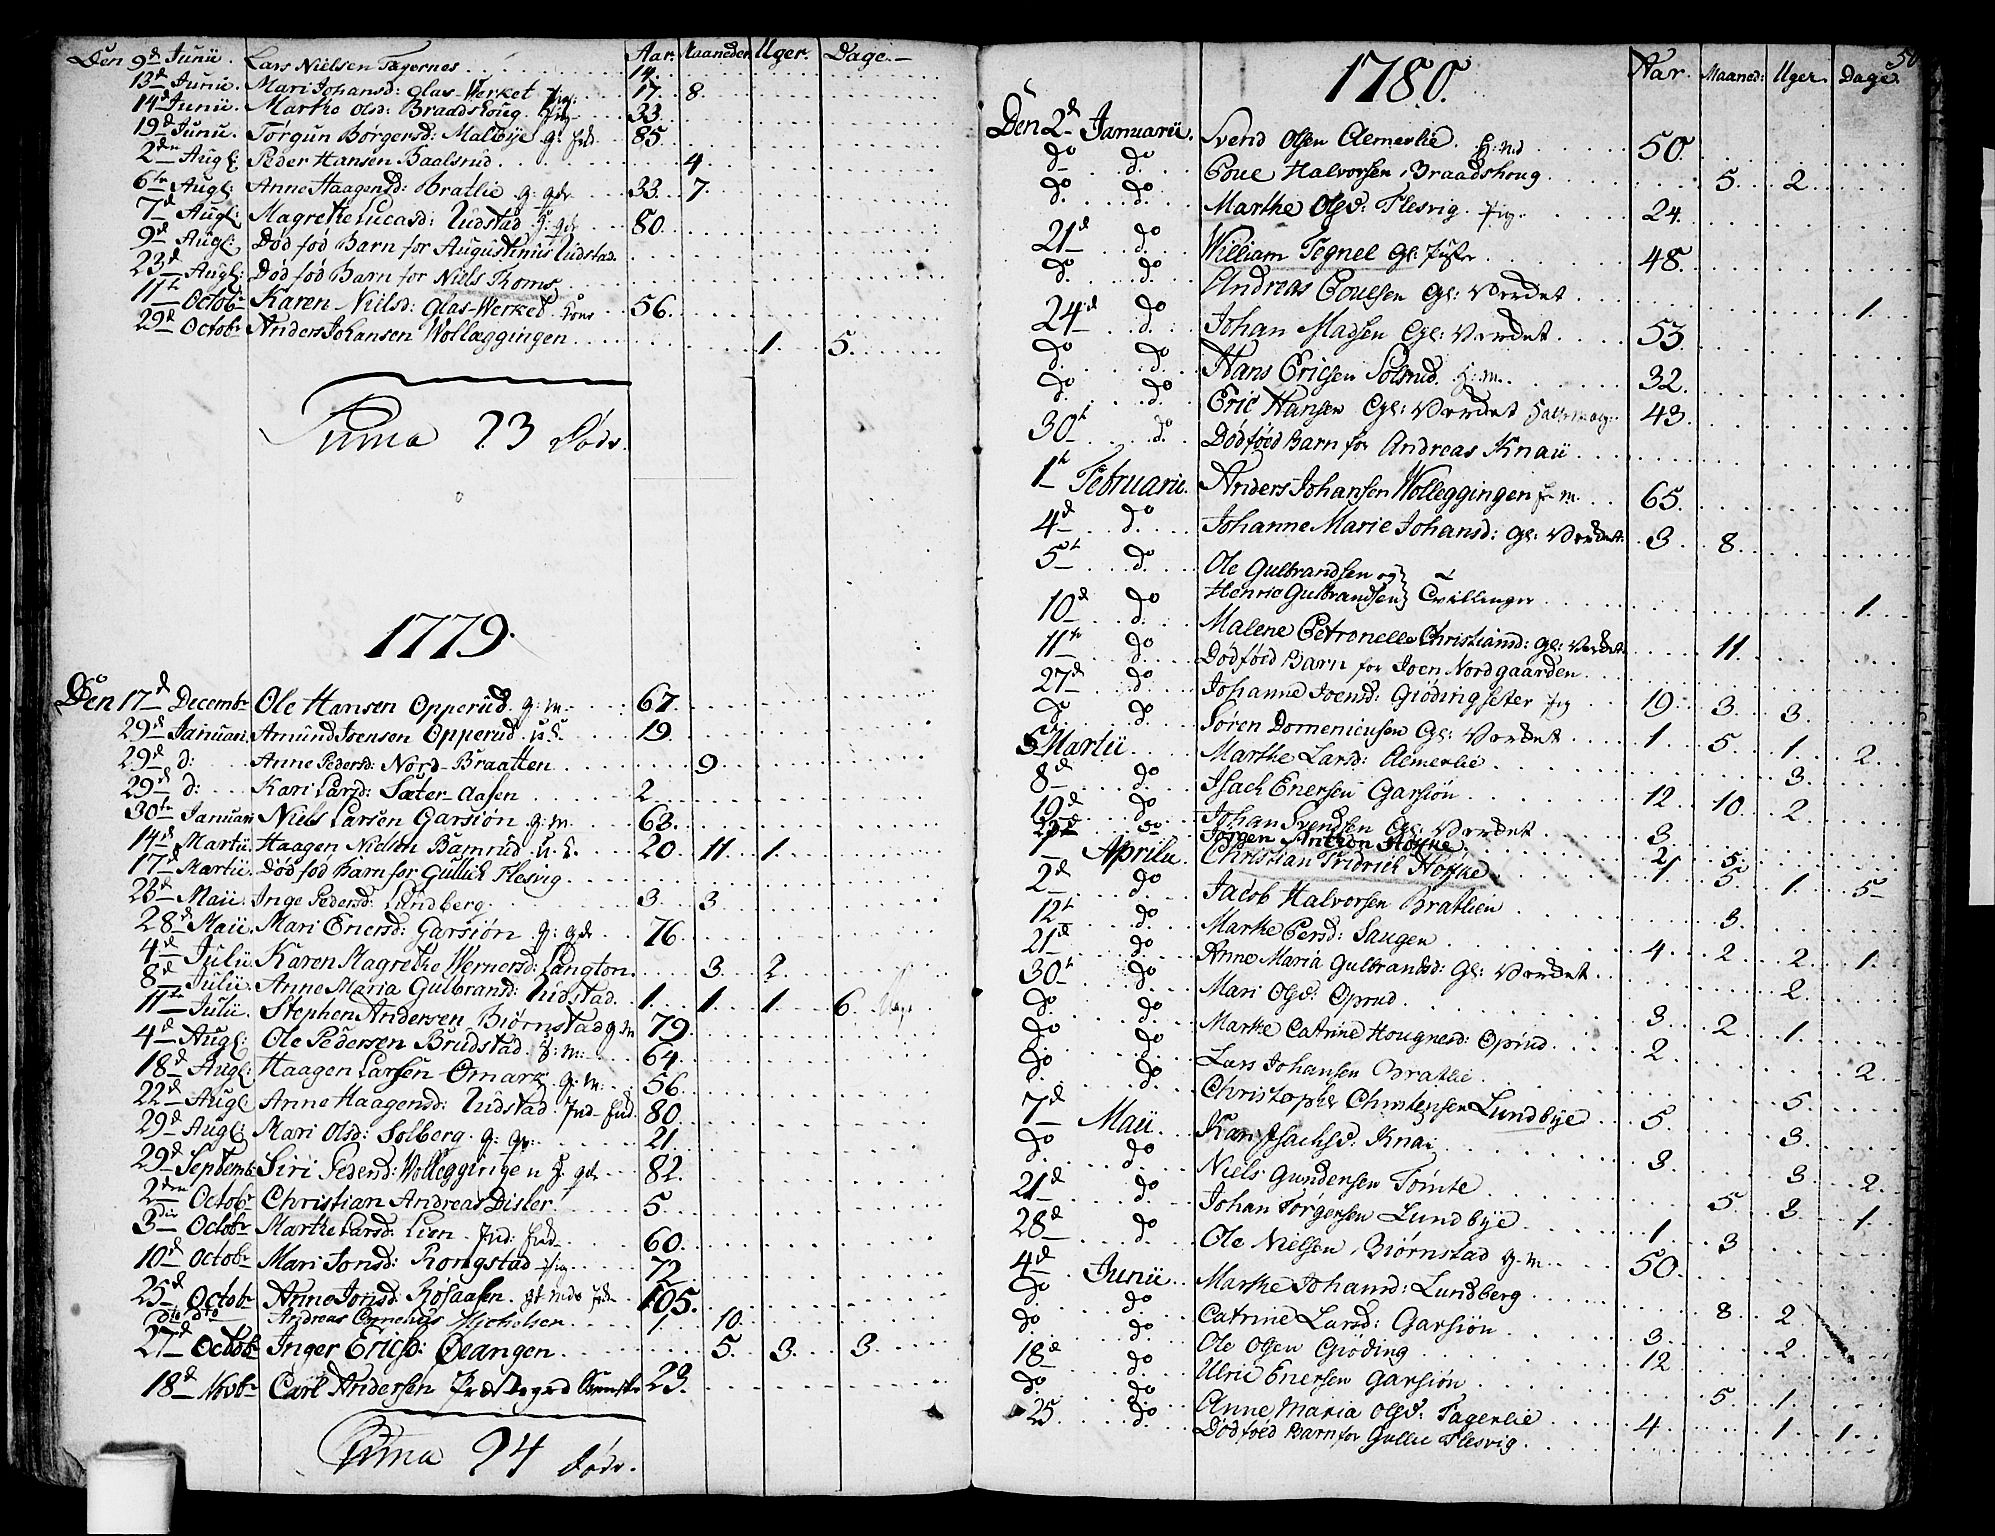 Aar. Maaneder. Uger. Dage.
Den 9d Junii. Lars Nielsen Tagernes 14.
13d Junii. Mari Johansd: Glas-Werket Pig. 17. 8.
14d Junii. Marthe Olsd: Braadshoug. Pig. 33.
19d Junii. Torgun Borgersd: Malbye g: 85.
2den Augl: Peder Hansen Baalsrud. 4.
6te Augl: Anne Haagensd: Bratlie g: 33. 7.
7d Augl: Magrethe Lucasd: Uudstad 80.
9d Augl: Død fød Barn for Augustinus Uudstad.
23d Augl: Død fød Barn for Niels Thoms.
11te Octobr Karen Nielsd: Glas-Werket. 56.
29d Octobr Anders Johansen Wollæggingen 1. 5.
Suma 23 Døde.
1779.
Den 17d Decembr Ole Hansen Opperud. g: m. 67.
29d Januari. Amund Joensen Opperud. u: k. 19.
29d d: Anne Pedersd: Nord-Braatten 9.
29d d: Kari Larsd: Sæter-Aasen 2.
30te Januari Niels Larsen Garsiøn g: m. 63.
14d Martii Haagen Nielsen Bamrud u: k. 20. 11. 1.
17d Martii. Død fød Barn for Gullich Flesvig
23d Maii. Inge Pedersd: Lundberg. 3. 3.
28d Maii. Mari Enersd: Garsiøn g: 76.
4d Julii Karen Magrethe Wernersd: Langton. 3. 2.
8d Julii. Anne Maria Gulbrand: Uudstad. 1. 1. 1. 6.
11te Julii. Stephen Andersen Biørnstad g m 79.
4d Augl: Ole Pedersen Brudstad. g: m. 64.
18d Augl: Haagen Larsen Omark g: m. 56.
22d Augl Anne Haagensd: Uudstad. 80.
29d Augl: Mari Olsd: Solberg. g: 21.
29d Septemb: Siri Pedersd: Wolleggingen 82.
2den Octobr Christian Andreas Disler 5.
3die Octobr Marthe Larsd: Lien. 60.
10d Octobr Mari Jonsd: Rongstad Pig 72.
25d Octobr Anne Jonsd: Røsaasen. 105.
Dito dto Andreas Cornelius Michelsen 1. 10.
27d Octobr Inger Ericsd: Øeangen 5. 3. 3.
18d Novbr Carl Andersen 23.
Suma 24 døde.
50
1780. Aar. Maaned: Uger. Dage.
Den 2d Januarii. Svend Olsen Almerlie. 50.
do do Poul Halvorsen Braadshoug 5. 2.
do do Marthe Olsd: Flesvig. Pig. 24.
21d do William Tegnel Gl: 48.
do do Andreas Poulsen Gl: Verdet 1.
24d do Johan Madsen Gl: Verdet. 53.
do do Hans Ericsen Solsrud. 32.
do do Eric Hansen Gl: Verdet 43.
30te do Dødføed Barn for Andreas Knau
1te Februarii. Anders Johansen Wolleggingen 65.
4d do Johanne Marie Johansd: Gl: Verdet. 3. 8.
5te do Ole Gulbrandsen og
Henric Gulbrandsen Tvillinger 1.
10d do Malene Petronelle Christiansd: Gl: Verdet 11.
11te do Dødføed Barn for Joen Nordgaarden
27d do Johanne Joensd: Giødingsæter Pig 19. 3. 3.
do do Søren Domenicusen Gl: Verdet 1. 5. 1. 2.
5 Martii Marthe Larsd: Almerlie 3.
8d do Isach Enersen Garsiøn 12. 10. 2.
19d do Johan Svendsen Gl: Verdet 3.
do Jørgen Anthon Høffke 2. 5.
1 Aprilii. Christian Fridrich Høffke 1. 5. 1. 5
2d do Jacob Halvorsen Bratlien 3.
12te do Marthe Persd: Saugen 4. 2. 2. 1.
21d do Anne Maria Gulbrandsd: Gl: Verdet 2.
30te do Mari Olsd: Oprud. 3. 2. 1.
do do Marthe Catrine Hougnesd: Oprud. 2.
do do Lars Johansen Bratlie. 2.
do do Christopher Christensen Lundbye 5. 5.
7d Maii Kari Isachsd: Knai 3. 3.
do do Niels Gundersen Tomte 3. 2.
21d do Johan Torgersen Lundbye 5. 3. 1.
28d do Ole Nielsen Biørnstad g: m. 1. 50. 3.
4d Junii Marthe Johansd: Lundberg 8. 2.
do do Catrine Larsd: Garsiøn 3.
do do Ole Olsen Giøding 12. 2.
18d do Ulric Enersen Garsiøn 5. 1.
do do Anne Maria Olsd: Tagerlie 4. 1. 1.
25 do Dødføed Barn for Gullic Flesvig